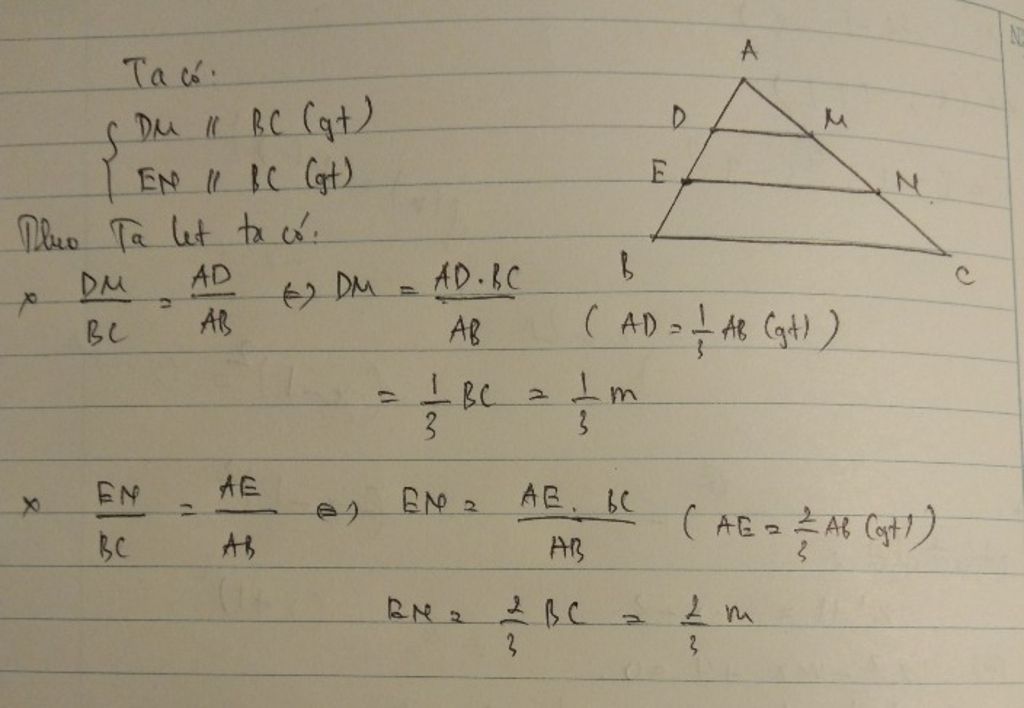 Ta có:
DM // BC (gt)
EN // BC (gt)
Theo Ta let ta có:
* DM/BC = AD/AB ⇔ DM = AD.BC/AB (AD = 1/3 AB (gt))
= 1/3 BC = 1/3 m
* EN/BC = AE/AB ⇔ EN = AE.BC/AB (AE = 2/3 AB (gt))
EN = 2/3 BC = 2/3 m
A
D M
E N
B C